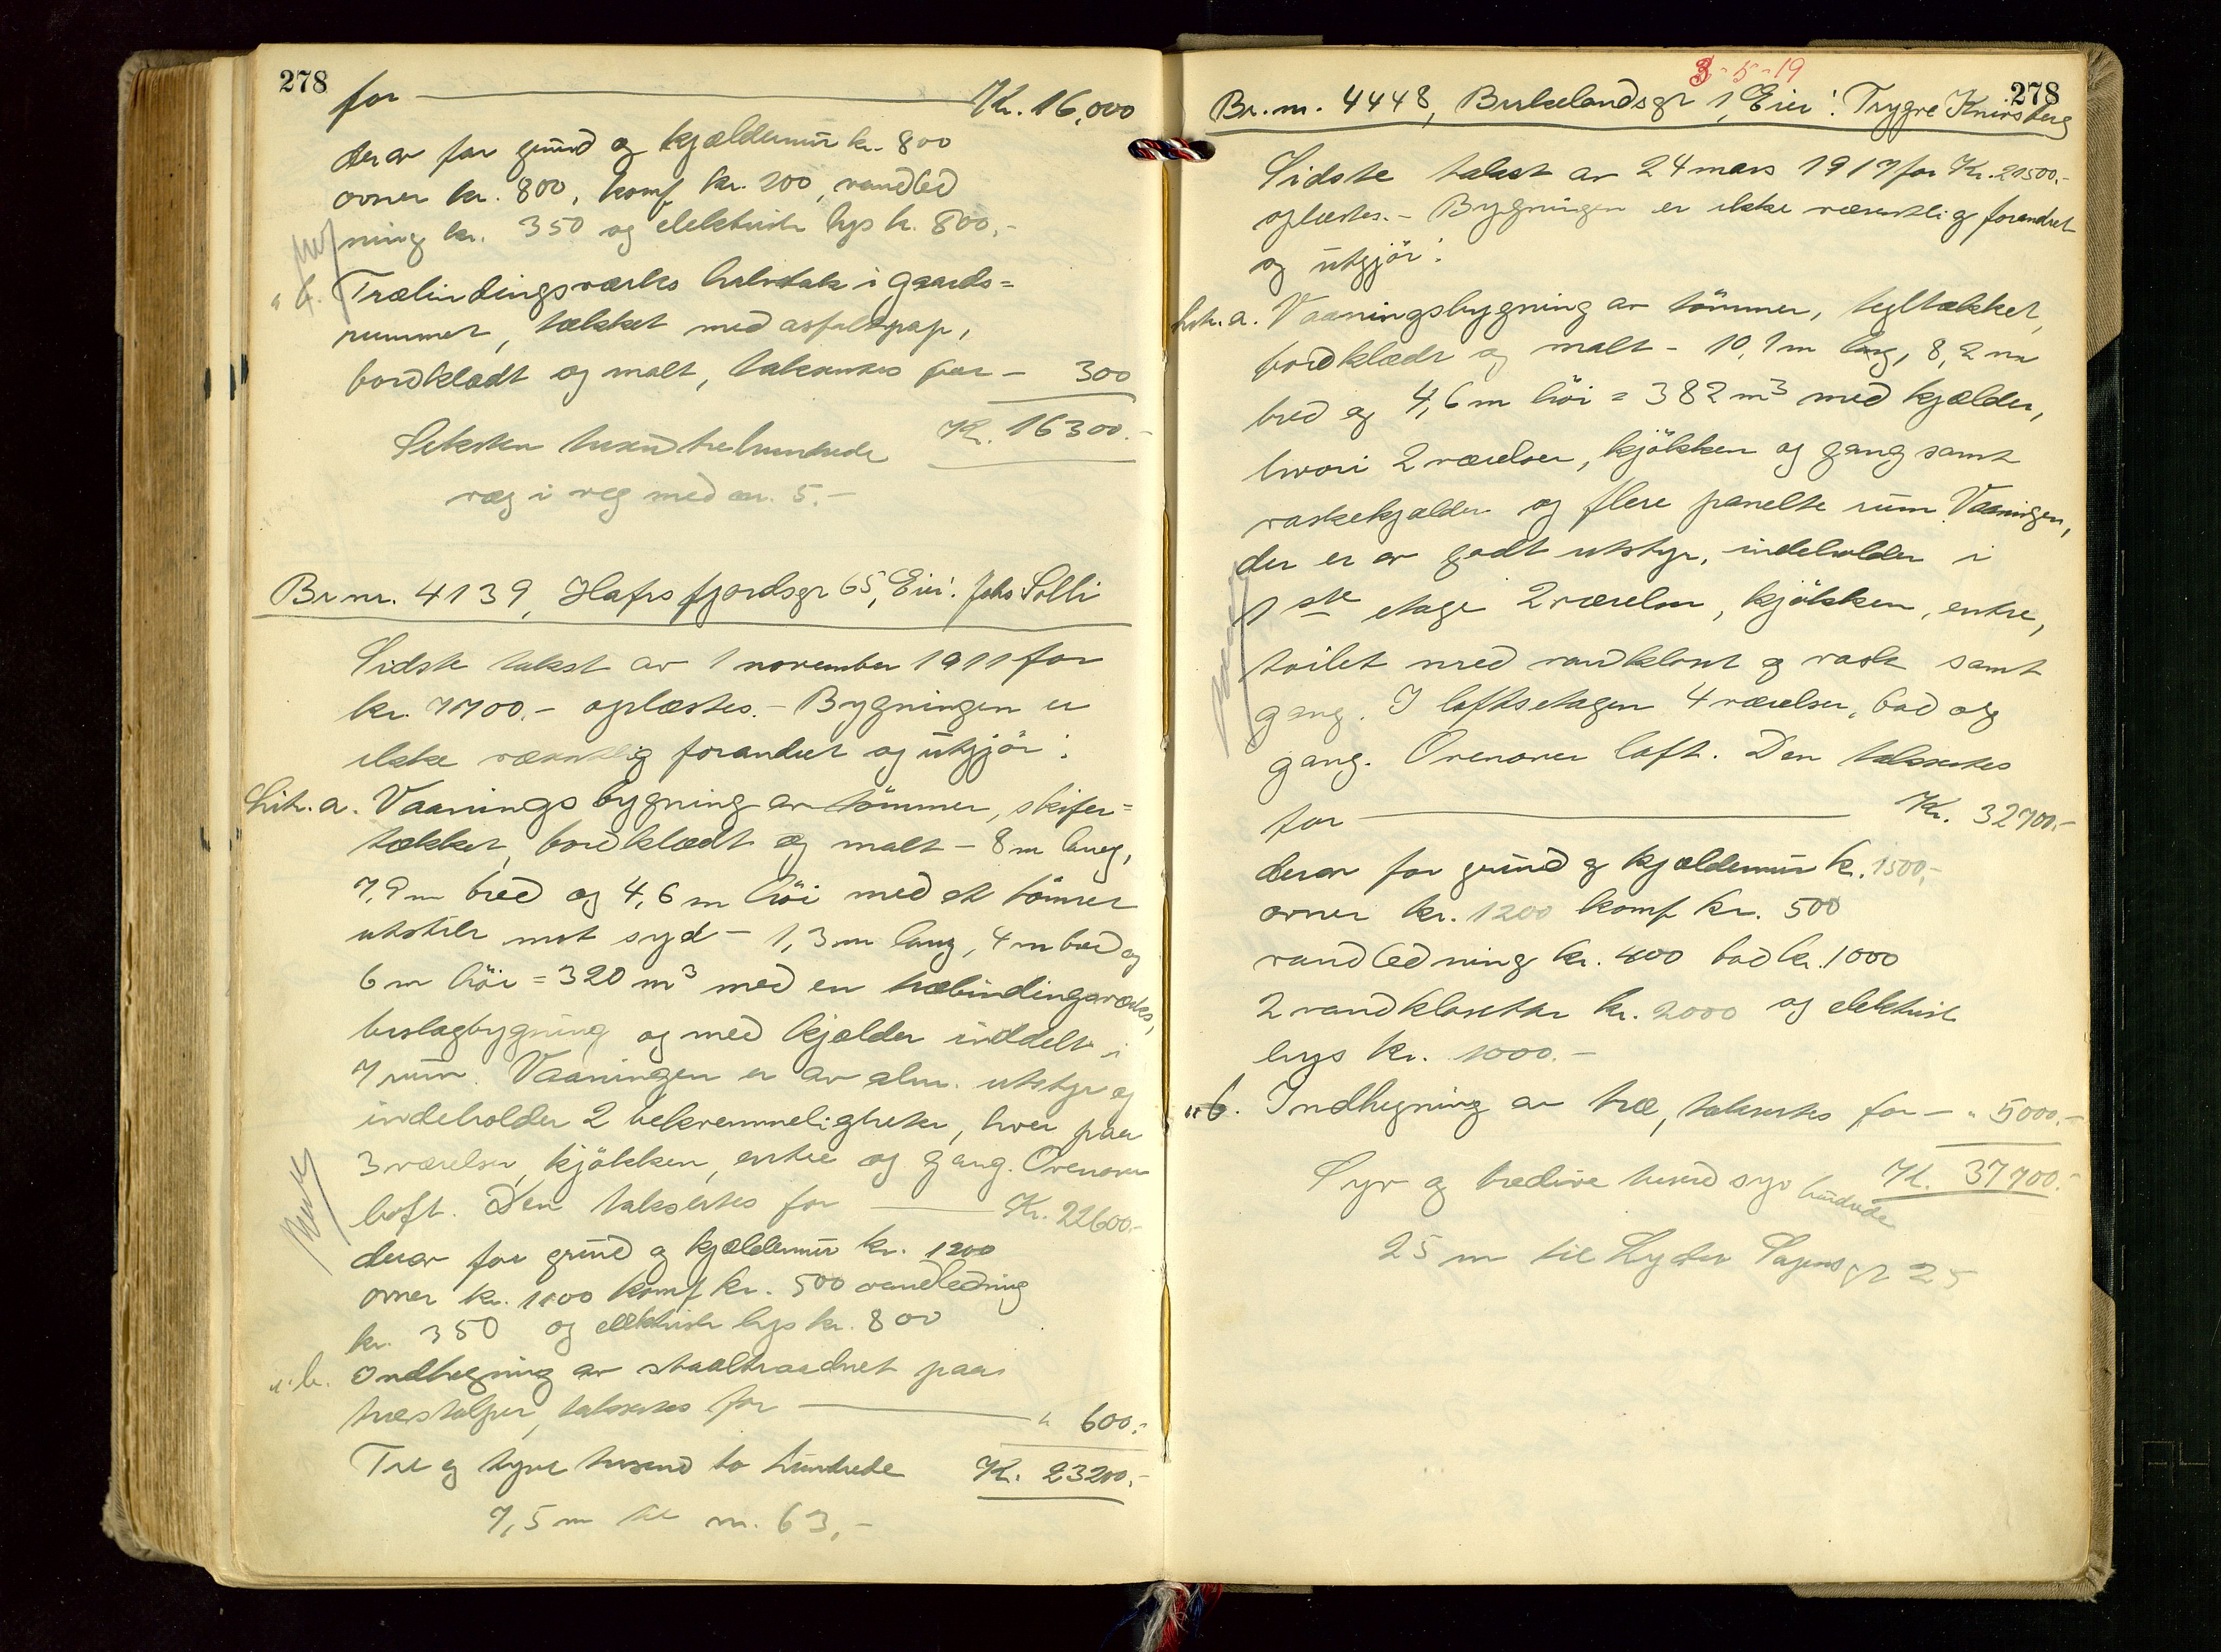 278
for — Kr. 16,000
derav for grund og kjældermur kr. 800
ovner kr. 800, komf kr. 200, vandled
ning kr. 350 og elektrisk lys kr. 800,-
" b. Træbindingsverks halvtak i gaards=
rummet, tækket med asfaltpap,
bordklædt og malt, taksertes for - 300
Kr. 16300.-
Seksten tusind trehundrede
væg i veg med nr. 5.-
Br nr. 4139, Hafrsfjordsgt 65, Eier: Johs Solli
Sidste takst av 1 november 1911 for
kr. 7700.- oplæstes. - Bygningen er
ikke væsentlig forandret og utgjør:
Litr. a. Vaaningsbygning av tömmer, skifer=
tækket, bordklædt og malt - 8 m lang,
7,9 m bred og 4,6 m höi med et tömmer
utstik mot syd - 1,3 m lang, 4 m bred og
6 m höi = 320 m³ med en træbindingsværks,
beslagbygning og med kjælder inddelt i
7 rum. Vaaningen er av alm. utstyr og
indeholder 2 bekvemmeligheter, hver paa
3 værelser, kjökken, entre og gang. Ovenover
loft. Den taksertes for — Kr. 22600.-
derav for grund og kjældermur kr. 1200
ovner kr. 1100 komf kr. 500 vandledning
kr. 350 og elektrisk lys kr. 800
" b. Indhegning av staaltraadnet paa
træstolper, taksertes for — " 600.-
Tre og tyve tusend to hundrede Kr. 23200.-
7,5 m til nr. 63,-
278
3-5-19
Br. nr. 4448, Birkelandsgt 1, Eier: Trygve Knivsberg
Sidste takst av 24 mars 1917 for Kr. 21500.-
oplæstes. - Bygningen er ikke væsentlig forandret
og utgjör:
Litr. a. Vaaningsbygning av tömmer, tegltækket,
bordklædt og malt - 10,1 m lang, 8,2 m
bred og 4,6 m höi = 382 m³ med kjælder,
hvori 2 værelser, kjökken og gang samt
vaskekjælder og flere panelte rum. Vaaningen,
der er av godt utstyr, indeholder i
1ste etage 2 værelser, kjökken, entre,
toilet med vandkloset og vask samt
gang. I loftsetagen 4 værelser, bad og
gang. Ovenover loft. Den taksertes
for — Kr. 32700.-
derav for grund og kjældermur kr. 1500,-
ovner kr. 1200 komf kr. 500
vandledning kr. 400 bad kr. 1000
2 vandklosetter kr. 2000 og elektrisk
lys kr. 1000.-
" b. Indhegning av træ, taksertes for - " 5000.-
Syv og tredive tusind syv hundrede Kr. 37700.-
25 m til Lyder Sagens gt 25